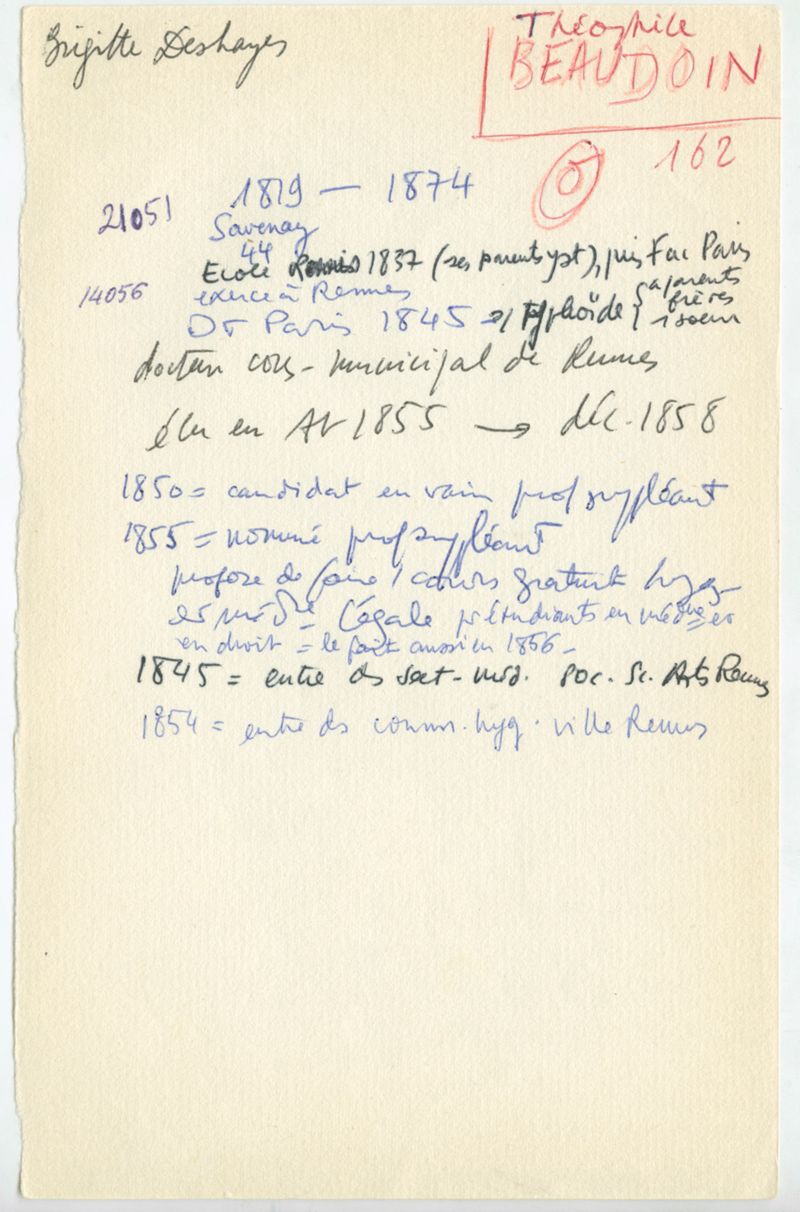 Brigitte Deshayes
Théophile
BEAUDOIN
162
21051
1819 — 1874
Savenay
44
Ecole Rennes 1837 (ses parents y st), puis Fac Paris
14056
exerce à Rennes
Dr Paris 1845 s/ typhoïde { 2 parents
frères
1 soeur
docteur cons-municipal de Rennes
élu en At 1855 → déc. 1858
1850 = candidat en vain prof suppléant
1855 = nommé prof suppléant
propose de faire 1 cours gratuit hyg
et méd légale pr étudiants en médne et
en droit = le fait aussi en 1856 -
1845 = entre ds sect-méd. Soc. Sc. Arts Rennes
1854 = entre ds comm. hyg. ville Rennes